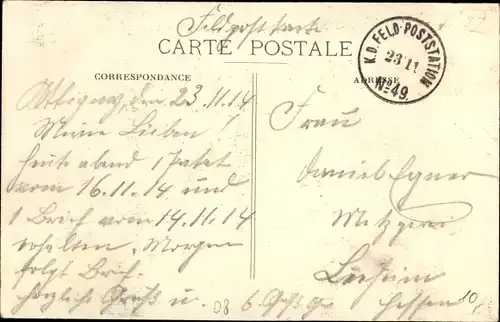 Feldpostkarte
CARTE POSTALE
CORRESPONDANCE
ADRESSE
K.D. FELD-POSTSTATION
23 11
No 49.
den 23.11.14
Meine Lieben!
heute abend 1 Paket
vom 16.11.14 und
1 Brief vom 14.11.14
erhalten. Morgen
folgt Brief.
herzliche Grüß u.
08
Frau
Daniel
Metzgerei
Leeheim
Hessen
10,